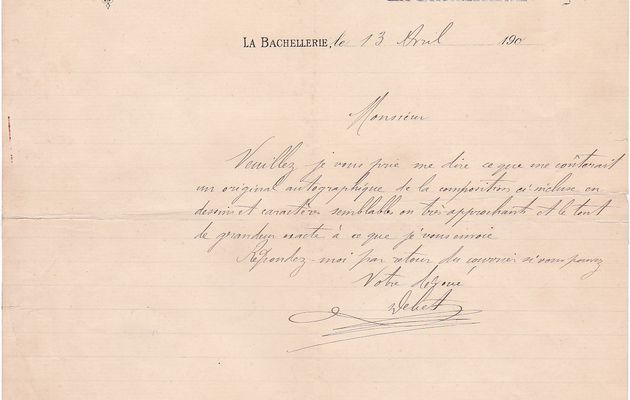 LA BACHELLERIE, le 13 Avril 190
Monsieur
Veuillez je vous prie me dire ce que me coûterait
un original autographique de la composition ci incluse en
dessin et caractères semblables ou très approchants et le tout
de grandeur exacte à ce que je vous envoie
Répondez-moi par retour du courrier si vous pouvez
Votre dévoué